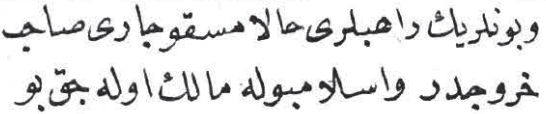 وبونلریك راهبلری حالا مسقو جاری صاحب
خروجدر واسلامبوله مالك اوله جق بو